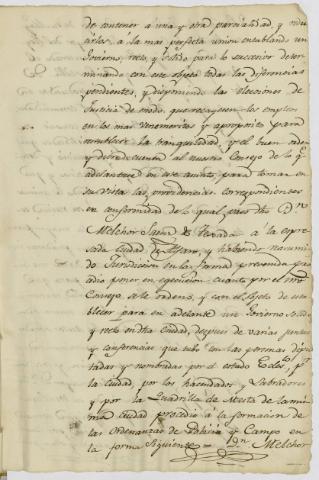 de contener a una y otra parcialidad y redu
cirlos, à la mas perfecta union entablando un
Govierno, recto, y solido para lo sucesivo deter
minando con este objeto todas las diferencias
pendientes, y disponiendo las elecciones de
Justicia de modo, que recayesen los empleos
en los mas venemeritos y aproposito para
establecer la tranquilidad, y el buen orden
y dièse cuenta al nuestro Consejo de lo q.e
adelantase en este asunto para tomar en
su vista las providencias correspondientes
en conformidad de lo qual paso dho D.n
Melchor de a la expre
sada Ciudad de y habiendo
do Jurisdiccion en la forma prevenida pro
cedio poner en egecucion quanto por el nro
Consejo, se le ordenò, y con el objeto de esta
blecer para en adelante un Govierno solido
y recto en dha Ciudad, despues de varias juntas
y conferencias que tubo con las personas dipu
tadas y nombradas por el estado Ecles.co p.r
la Ciudad, por los hacendados y Labradores
y por la Quadrilla de Mesta de la mis
ma Ciudad procediò à la formacion de
las Ordenanzas de Policia y Campo en
la forma siguiente = D.n Melchor